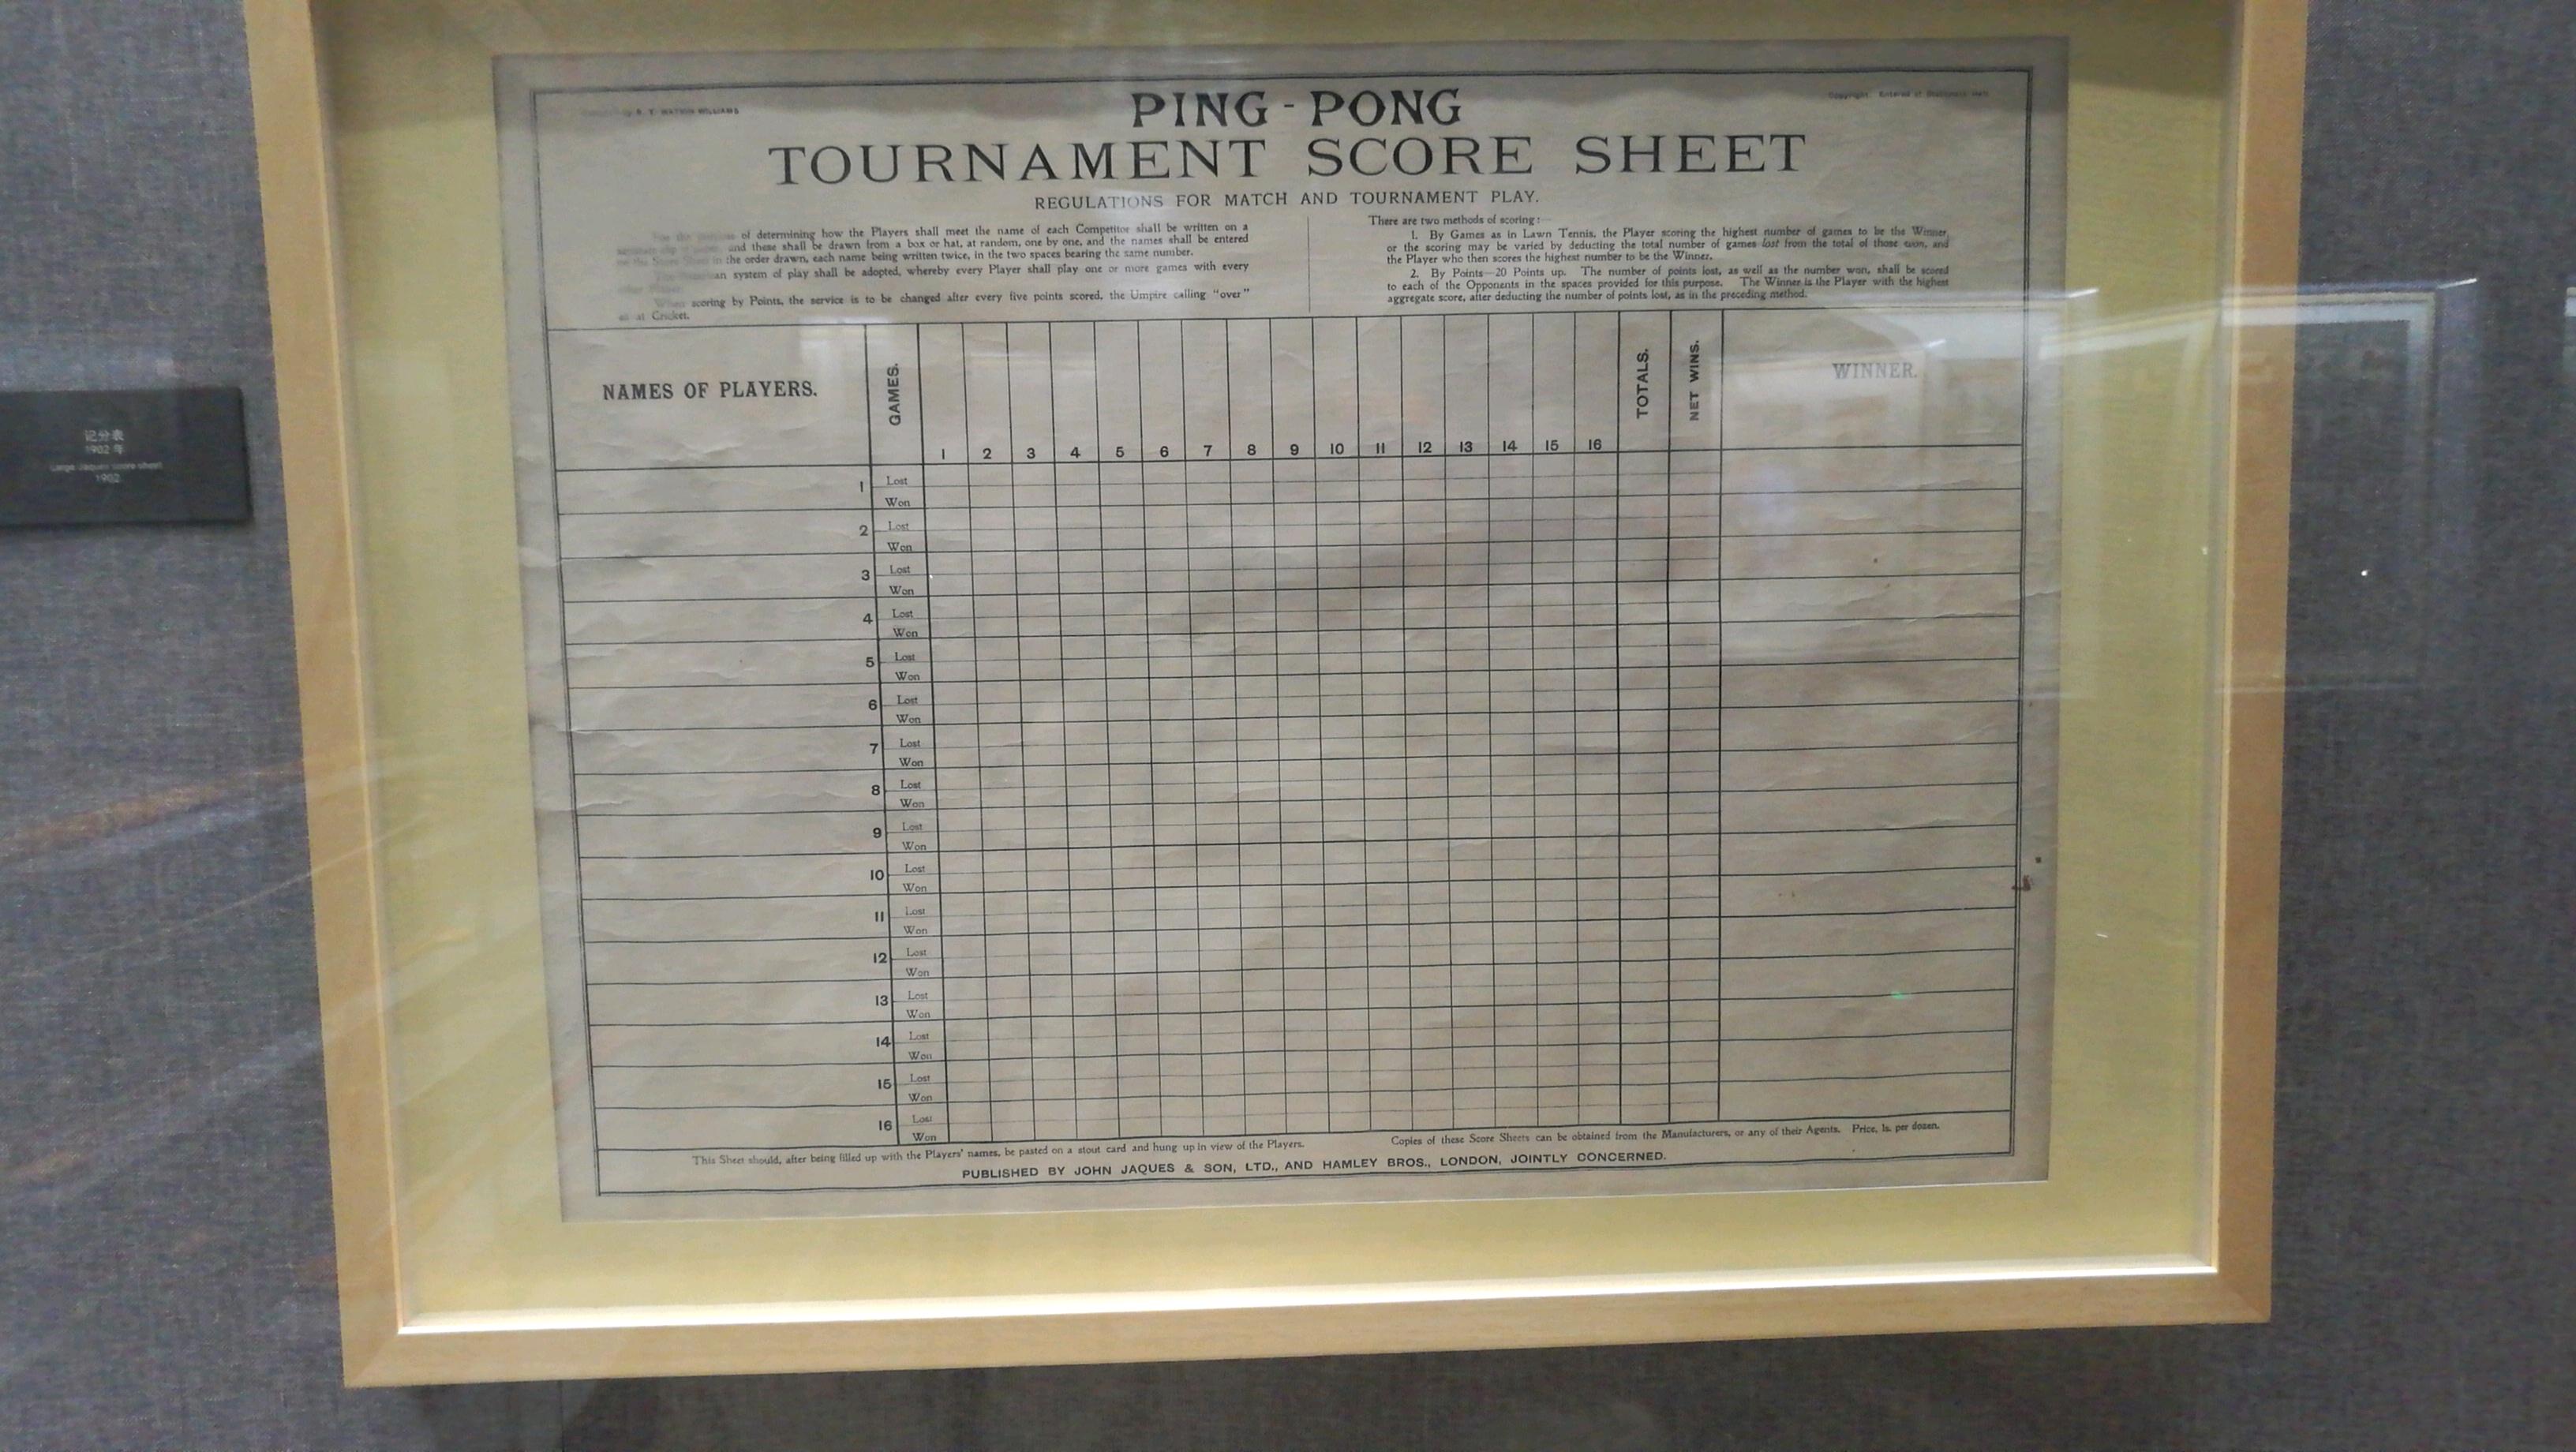 R. T. WATKIN WILLIAMS
PING - PONG
TOURNAMENT SCORE SHEET
REGULATIONS FOR MATCH AND TOURNAMENT PLAY.
of determining how the Players shall meet the name of each Competitor shall be written on a
and these shall be drawn from a box or hat, at random, one by one, and the names shall be entered
in the order drawn, each name being written twice, in the two spaces bearing the same number.
system of play shall be adopted, whereby every Player shall play one or more games with every
When scoring by Points, the service is to be changed after every five points scored, the Umpire calling "over"
as at Cricket.
There are two methods of scoring:—
1. By Games as in Lawn Tennis, the Player scoring the highest number of games to be the Winner,
or the scoring may be varied by deducting the total number of games lost from the total of those won, and
the Player who then scores the highest number to be the Winner.
2. By Points—20 Points up. The number of points lost, as well as the number won, shall be scored
to each of the Opponents in the spaces provided for this purpose. The Winner is the Player with the highest
aggregate score, after deducting the number of points lost, as in the preceding method.
NAMES OF PLAYERS.
GAMES.
1 2 3 4 5 6 7 8 9 10 11 12 13 14 15 16
TOTALS.
NET WINS.
WINNER.
1 Lost
Won
2 Lost
Won
3 Lost
Won
4 Lost
Won
5 Lost
Won
6 Lost
Won
7 Lost
Won
8 Lost
Won
9 Lost
Won
10 Lost
Won
11 Lost
Won
12 Lost
Won
13 Lost
Won
14 Lost
Won
15 Lost
Won
16 Lost
Won
This Sheet should, after being filled up with the Players' names, be pasted on a stout card and hung up in view of the Players.
Copies of these Score Sheets can be obtained from the Manufacturers, or any of their Agents. Price, 1s. per dozen.
PUBLISHED BY JOHN JAQUES & SON, LTD., AND HAMLEY BROS., LONDON, JOINTLY CONCERNED.
记分表
1902 年
Large Jaques score sheet
1902